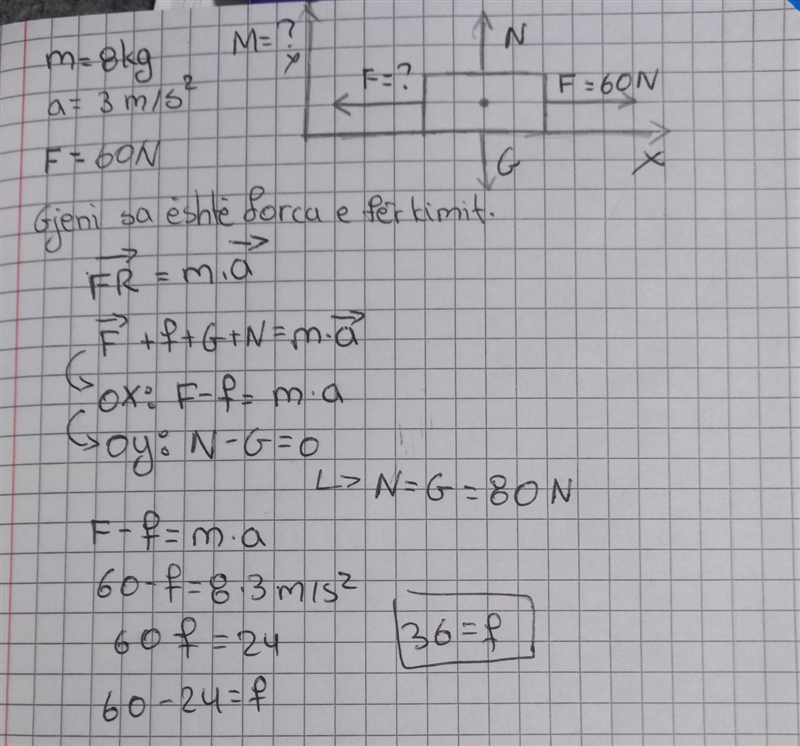 m=8kg
M=?
a=3 m/s²
F=60N
y
N
F=?
F=60N
G
X
Gjeni sa është forca e fërkimit.
FR = m.a
F + f + G + N = m.a
OX: F-f= m.a
Oy: N-G=0
L> N=G=80N
F-f=m.a
60-f=8.3m/s²
60 f =24
36=f
60-24=f